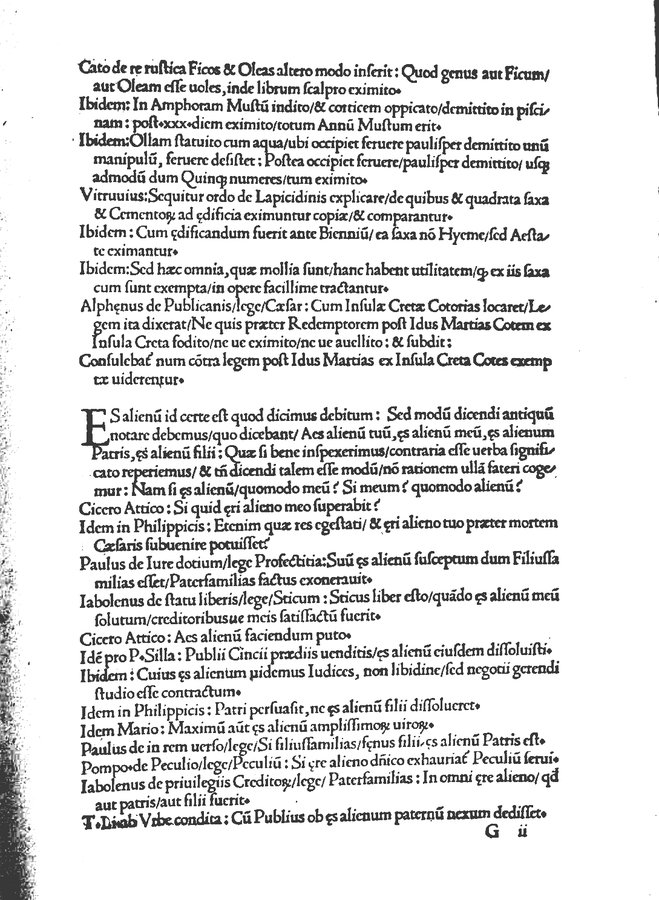 Cato de re rustica Ficos & Oleas altero modo inserit: Quod genus aut Ficum/
aut Oleam esse uoles, inde librum scalpro eximito.
Ibidem: In Amphoram Mustū indito/& corticem oppicato/demittito in pisci-
nam: post.xxx.diem eximito/totum Annū Mustum erit.
Ibidem:Ollam statuito cum aqua/ubi occipiet feruere paulisper demittito unū
manipulū, feruere desistet: Postea occipiet feruere/paulisper demittito/ usqꝫ
admodū dum Quinqꝫ numeres/tum eximito.
Vitruuius:Sequitur ordo de Lapicidinis explicare/de quibus & quadrata saxa
& Cementoꝝ ad ędificia eximuntur copiæ/& comparantur.
Ibidem: Cum ędificandum fuerit ante Bienniū/ ea saxa nō Hyeme/sed Aesta-
te eximantur.
Ibidem:Sed hæc omnia,quæ mollia sunt/hanc habent utilitatem/ꝙ ex iis saxa
cum sunt exempta/in opere facillime tractantur.
Alphęnus de Publicanis/lege/Cæsar: Cum Insulæ Cretæ Cotorias locaret/Le-
gem ita dixerat/Ne quis præter Redemptorem post Idus Martias Cotem ex
Insula Creta fodito/ne ue eximito/ne ue auellito: & subdit:
Consulebat̄ num cōtra legem post Idus Martias ex Insula Creta Cotes exemp
tæ uiderentur.
ES alienū id certe est quod dicimus debitum: Sed modū dicendi antiquū
notare debemus/quo dicebant/ Aes alienū tuū,ęs alienū meū,ęs alienum
Patris,ęs alienū filii: Quæ si bene inspexerimus/contraria esse uerba signifi-
cato reperiemus/ & tñ dicendi talem esse modū/nō rationem ullā fateri coge-
mur: Nam si ęs alienū/quomodo meū? Si meum? quomodo alienū?
Cicero Attico: Si quid ęri alieno meo superabit?
Idem in Philippicis: Etenim quæ res egestati/ & ęri alieno tuo præter mortem
Cæsaris subuenire potuisset?
Paulus de Iure dotium/lege Profectitia:Suū ęs alienū susceptum dum Filiussa
milias esset/Patersamilias factus exonerauit.
Iabolenus de statu liberis/lege/Sticum: Sticus liber esto/quādo ęs alienū meū
solutum/creditoribusue meis satissactū fuerit.
Cicero Attico: Aes alienū faciendum puto.
Idē pro P.Silla: Publii Cincii prædiis uenditis/ęs alienū eiusdem dissoluisti.
Ibidem: Cuius ęs alienum uidemus Iudices, non libidine/sed negotii gerendi
studio esse contractum.
Idem in Philippicis: Patri persuasit,ne ęs alienū filii dissolueret.
Idem Mario: Maximū aūt ęs alienū amplissimoꝝ uiroꝝ.
Paulus de in rem uerso/lege/Si filiussamilias/fęnus filii.ęs alienū Patris est.
Pompo.de Peculio/lege/Peculiū: Si ęre alieno dñico exhauriat̄ Peculiū serui.
Iabolenus de priuilegiis Creditoꝝ/lege/ Patersamilias: In omni ęre alieno/ qđ
aut patris/aut filii fuerit.
T.Liui.ab Vrbe condita: Cū Publius ob ęs alienum paternū nexum dedisset.
G ii